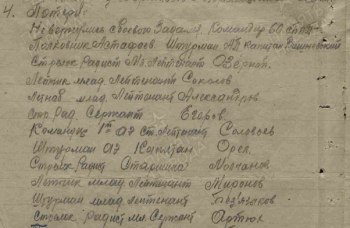 4. Потери:
Не вернулись с боевого задан. Командир БАП
Полковник Астафьев Штурман АП Капитан
Стрелок Радист Мл. Лейтенант
Летчик млад. Лейтенант Соколов
млад. Лейтенант Александров
Стр. Рад. Сержант Егоров
Команд. 1го АЭ Ст. Лейтенант Соловьев
Штурман АЭ Капитан Орел
Стрелок Радист Старшина Молчанов
Летчик млад. Лейтенант Миронов
Штурман млад. лейтенант Безъязыков
Стрелок Радист мл. Сержант Артюх